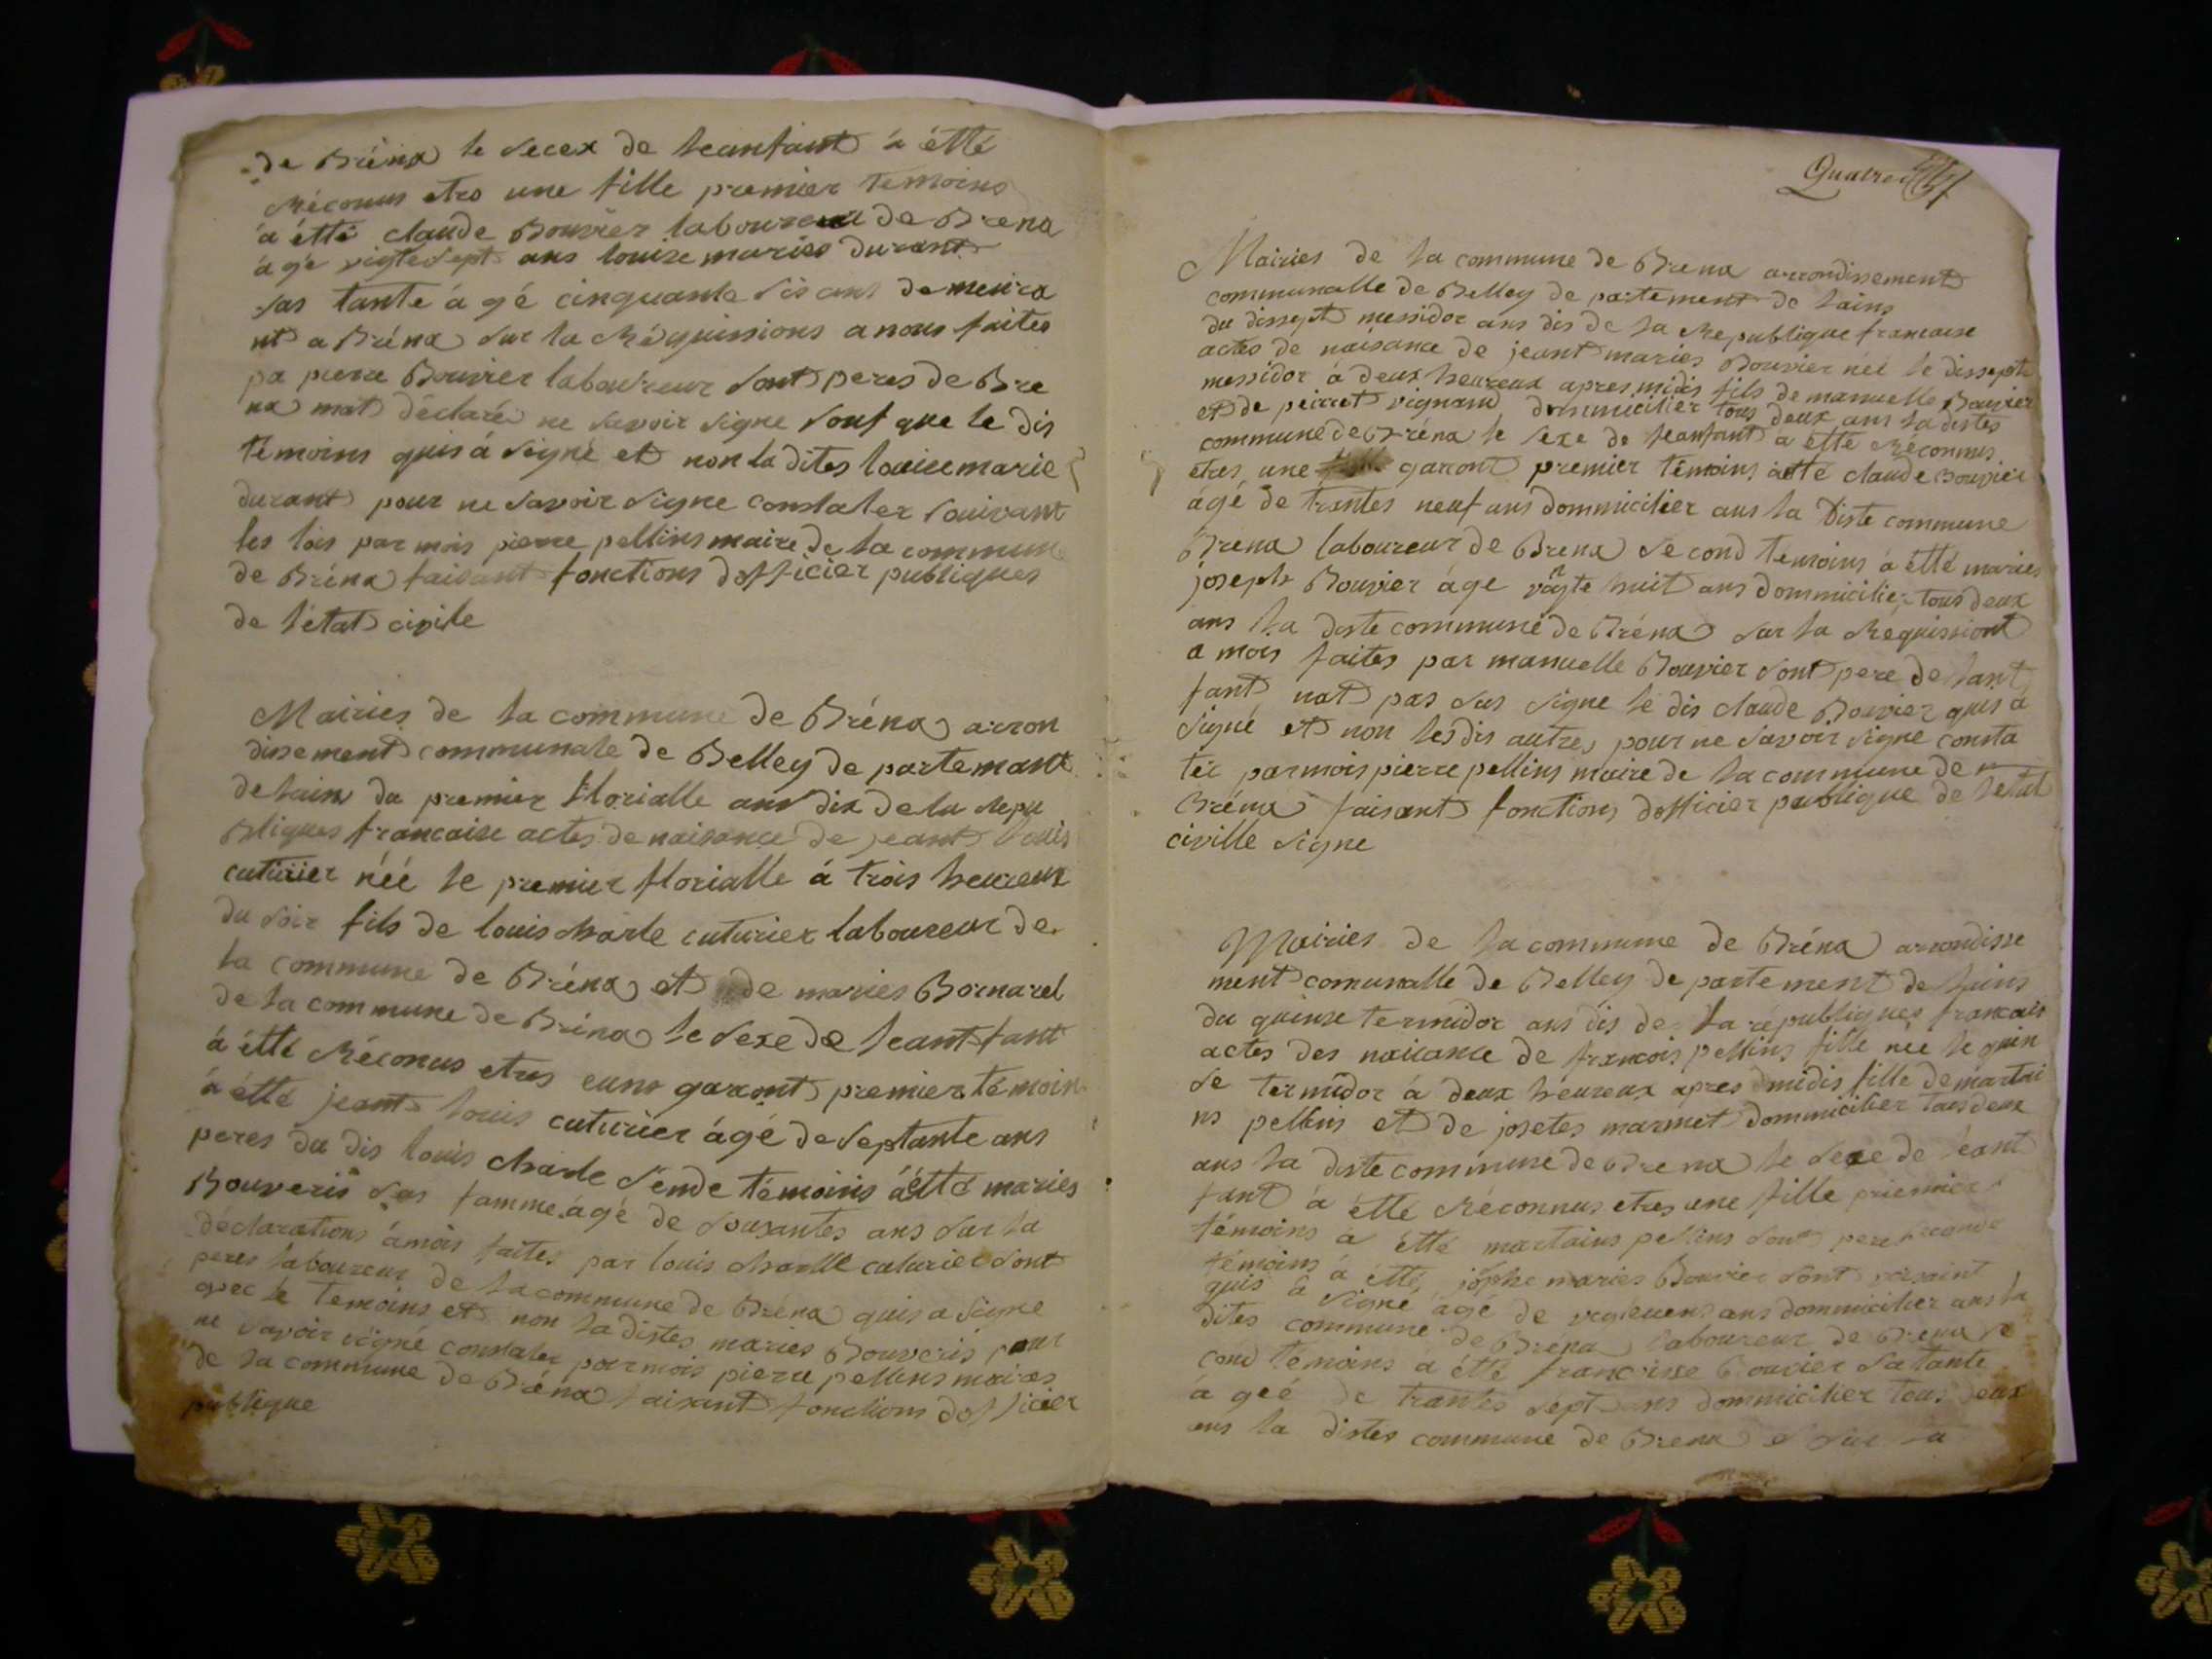 de Bréna le secex de leanfant à étté
Réconus etre une fille premier temoins
à étté claude Bouvier laboureur de Brena
à gé vigtesept ans louise maries durant
sas tante à gé cinquante sis ans demeura
nt a Bréna sur la Réquissions a nous faites
pa pierre Bouvier laboureur sont peres de Bre
na mat déclaré ne savoir signe souf que le dis
témoins quis à signé et non la dites louisemarie
durant pour ne savoir signe constater souivant
les lois par mois pierre pellins maire de la commune
de Bréna faisant fonctions dofficier publiques
de létat civile
Mairies de la commune de Bréna arron
dissement communale de Belley de partemant
de lain du premier florialle ans dix de la repu
bliques francaise actes de naisance de jeant louis
cuturier néé le premier florialle á trois heureux
du soir fils de louis charle cuturier laboureur de
la commune de Bréna et de maries Bornarel
de la commune de Bréna le sexe de leant fant
à étté Réconus etres euns garont premier témoin
à étté jeant louis cuturier ágé de septante ans
peres du dis louis charle sende témoins àétté maries
Bouveris sas famme ágé de sousantes ans sur la
déclarations ámois faites par louis charlle cuturier sont
peres laboureur de la commune de Bréna quis a signe
avec le temoins et non la distes maries Bouveris pour
ne savoir signé constater parmois pierre pellins maires
de la commune de Bréna faisant fonctions dofficier
publique
Quatre
Mairies de la commune de Brena arrondissement
communalle de Belley de partement de lains
du dissept messidor ans dis de la Republique francaise
actes de naisance de jeant maries Bouvier néé le dissepte
messidor à deux heureux apres midis fils de manuelle Bouvier
et de peirret vignand dommicilier tous deux ans la distes
commune de Bréna le sexe de leanfant a étté Réconnus
etres une garront premier témoins àetté claude Bouvier
ágé de trantes neuf ans dommicilier ans la Diste commune
Brena laboureur de Brena second temoins à étté maries
joseph Bouvier ágé vingte huit ans dommicilier tous deux
ans la diste commune de Bréna sur la Requissiont
a mois faites par manuelle Bouvier sont pere de lant
fant nat pas sus signe le dis claude Bouvier quis a
signé et non les dis autres pour ne savoir signe consta
tér parmois pierre pellins maire de la commune de
Bréna faisant fonctions dofficier publique de letat
civille signe
Mairies de la commune de Bréna arrondisse
ment comunalle de Belley de partement de lains
du quinse termidor ans dis de la républiques francais
actes des naicance de francois pellins fille née le quin
se termidor à deux héureux apres midis fille de martai
ns pellins et de josetes marmet dommicilier tous deux
ans la diste commune de Brena le sexe de leant
fant à étté Réconnus etres une fille priemier
témoins à étté martains pellins sont pere segonde
témoins à étté josphe maries Bouvier sont voisaint
quis à signé ágé de ans dommicilier ans la
dites commune de Bréna laboureur de Brena se
cond témoins à étté francoise Bouvier sa tante
à geé de trantes sépt ans dommicilier tous deux
ans la distes commune de Brena sur la